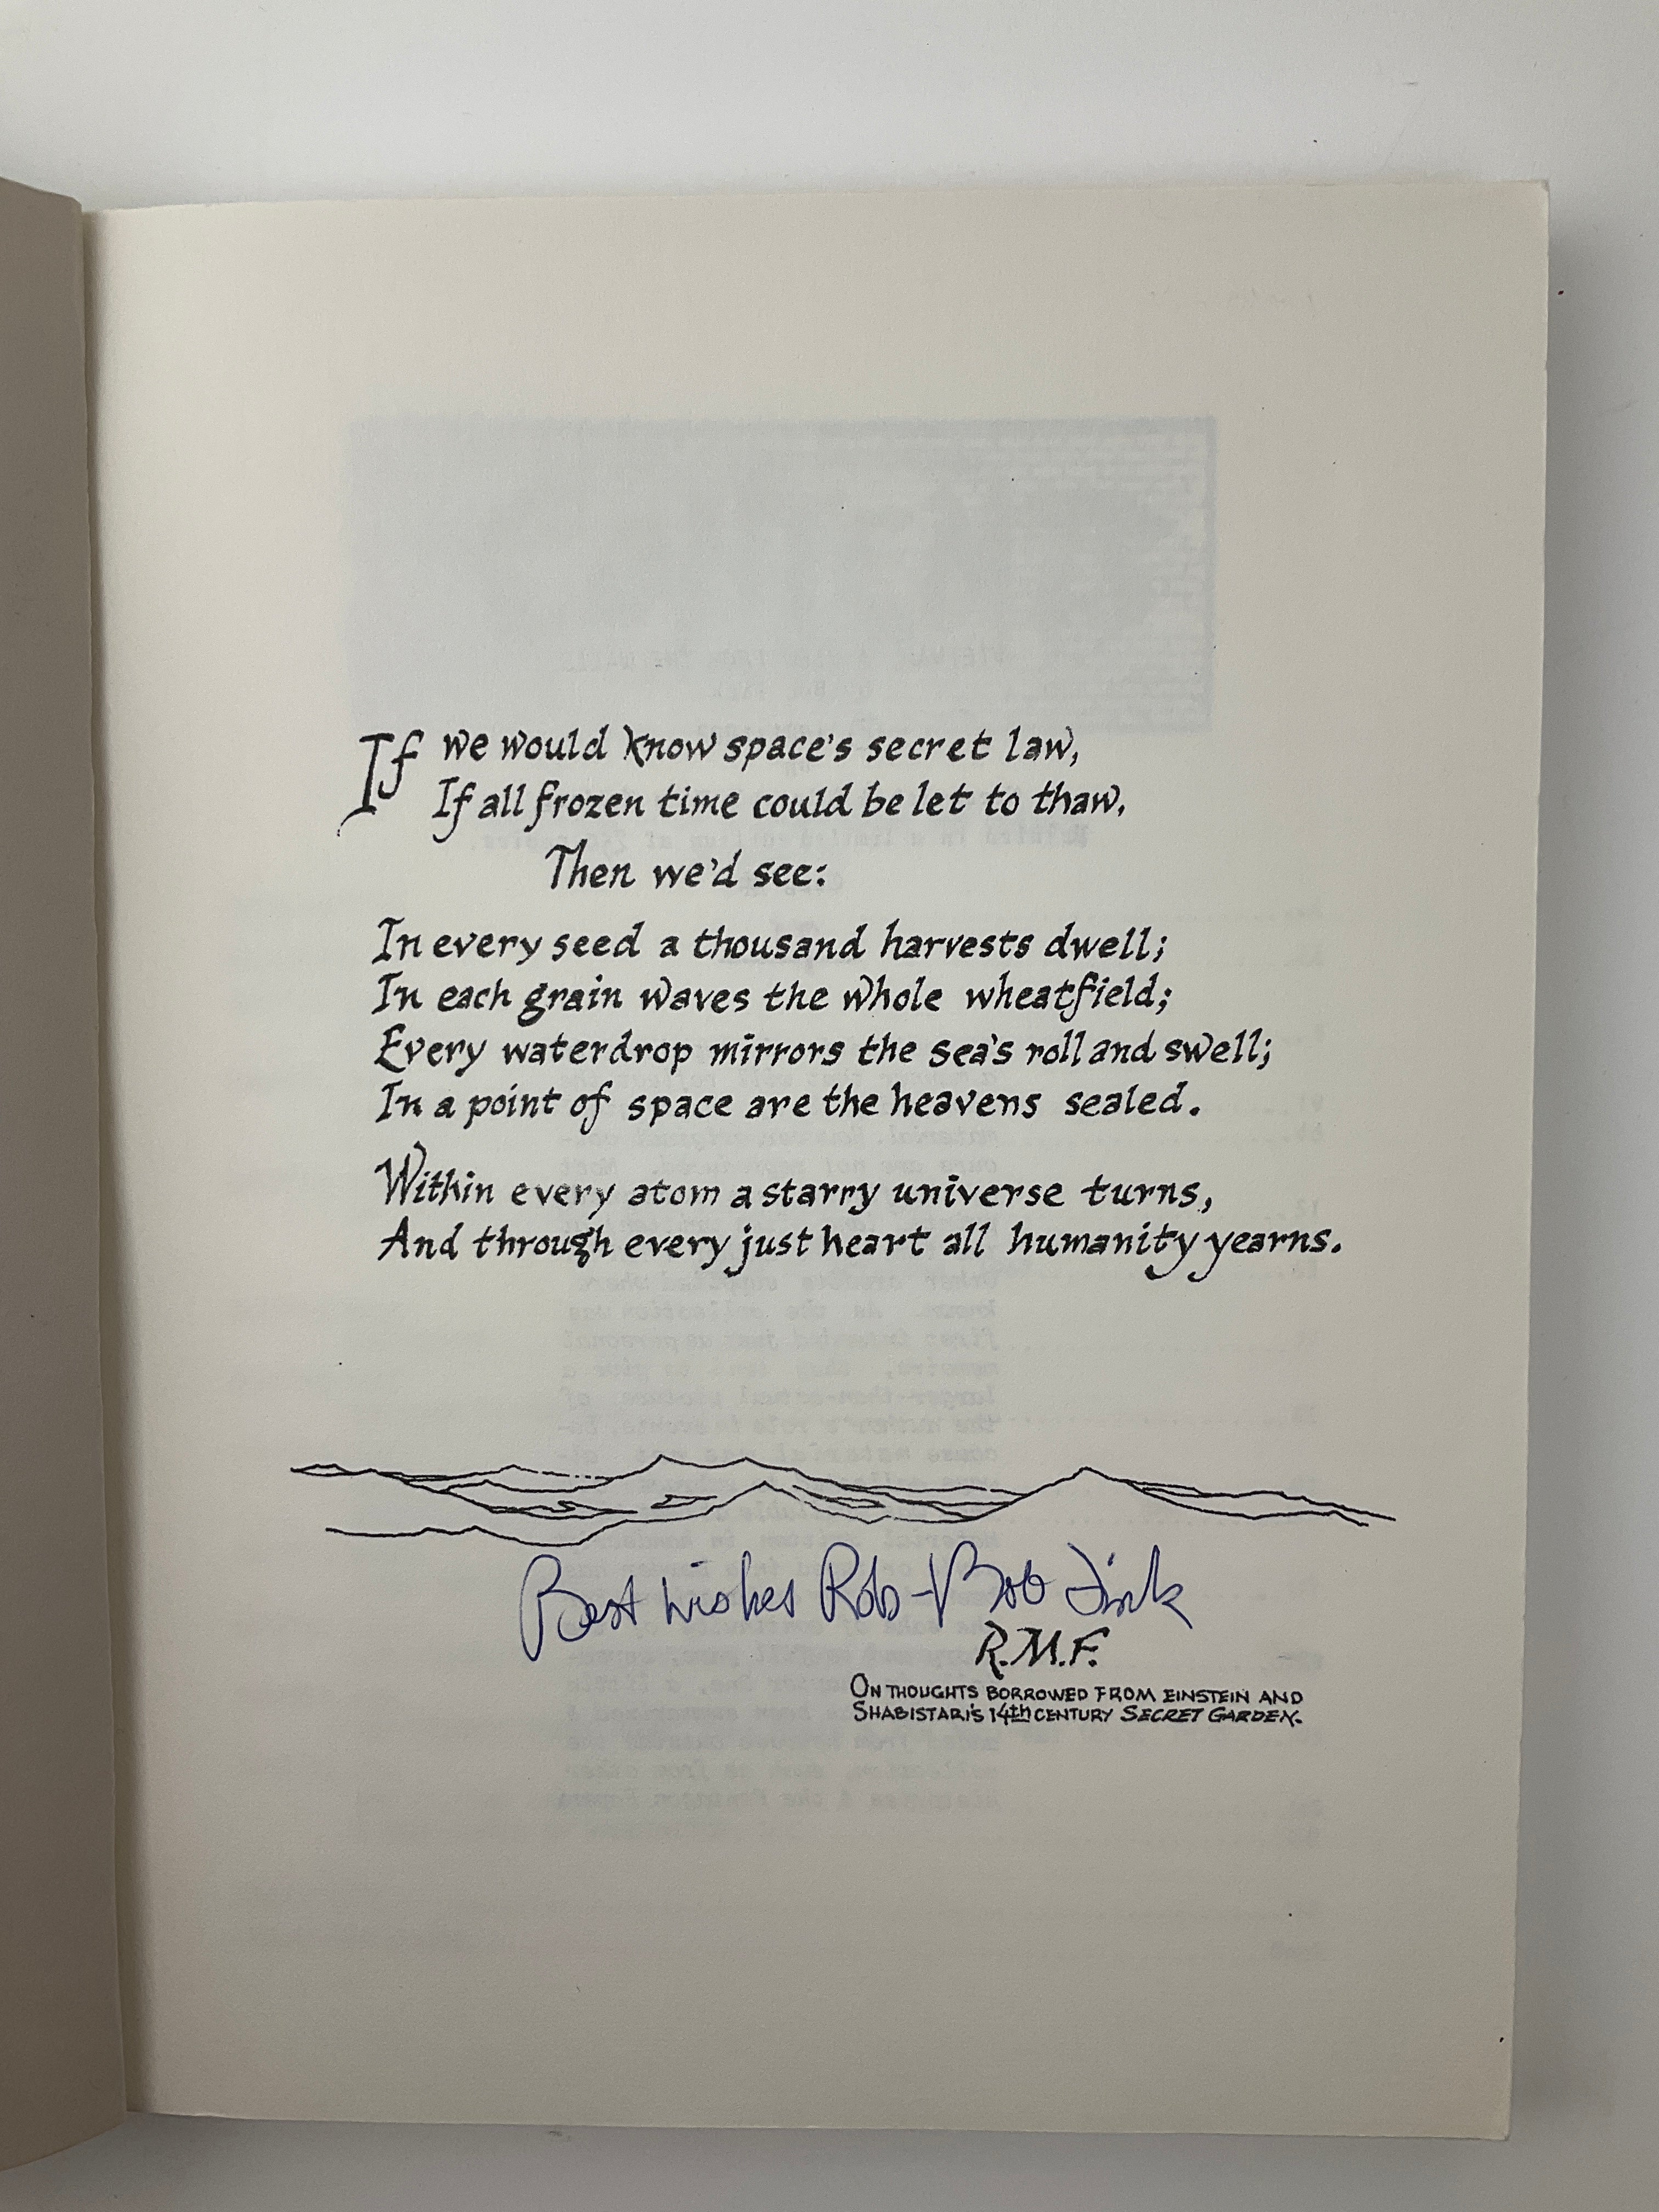 If we would know space's secret law,
If all frozen time could be let to thaw,
Then we'd see:
In every seed a thousand harvests dwell;
In each grain waves the whole wheatfield;
Every waterdrop mirrors the sea's roll and swell;
In a point of space are the heavens sealed.
Within every atom a starry universe turns,
And through every just heart all humanity yearns.
Best wishes Rob - Bob Fink
R.M.F.
ON THOUGHTS BORROWED FROM EINSTEIN AND
SHABISTARI'S 14th CENTURY SECRET GARDEN.